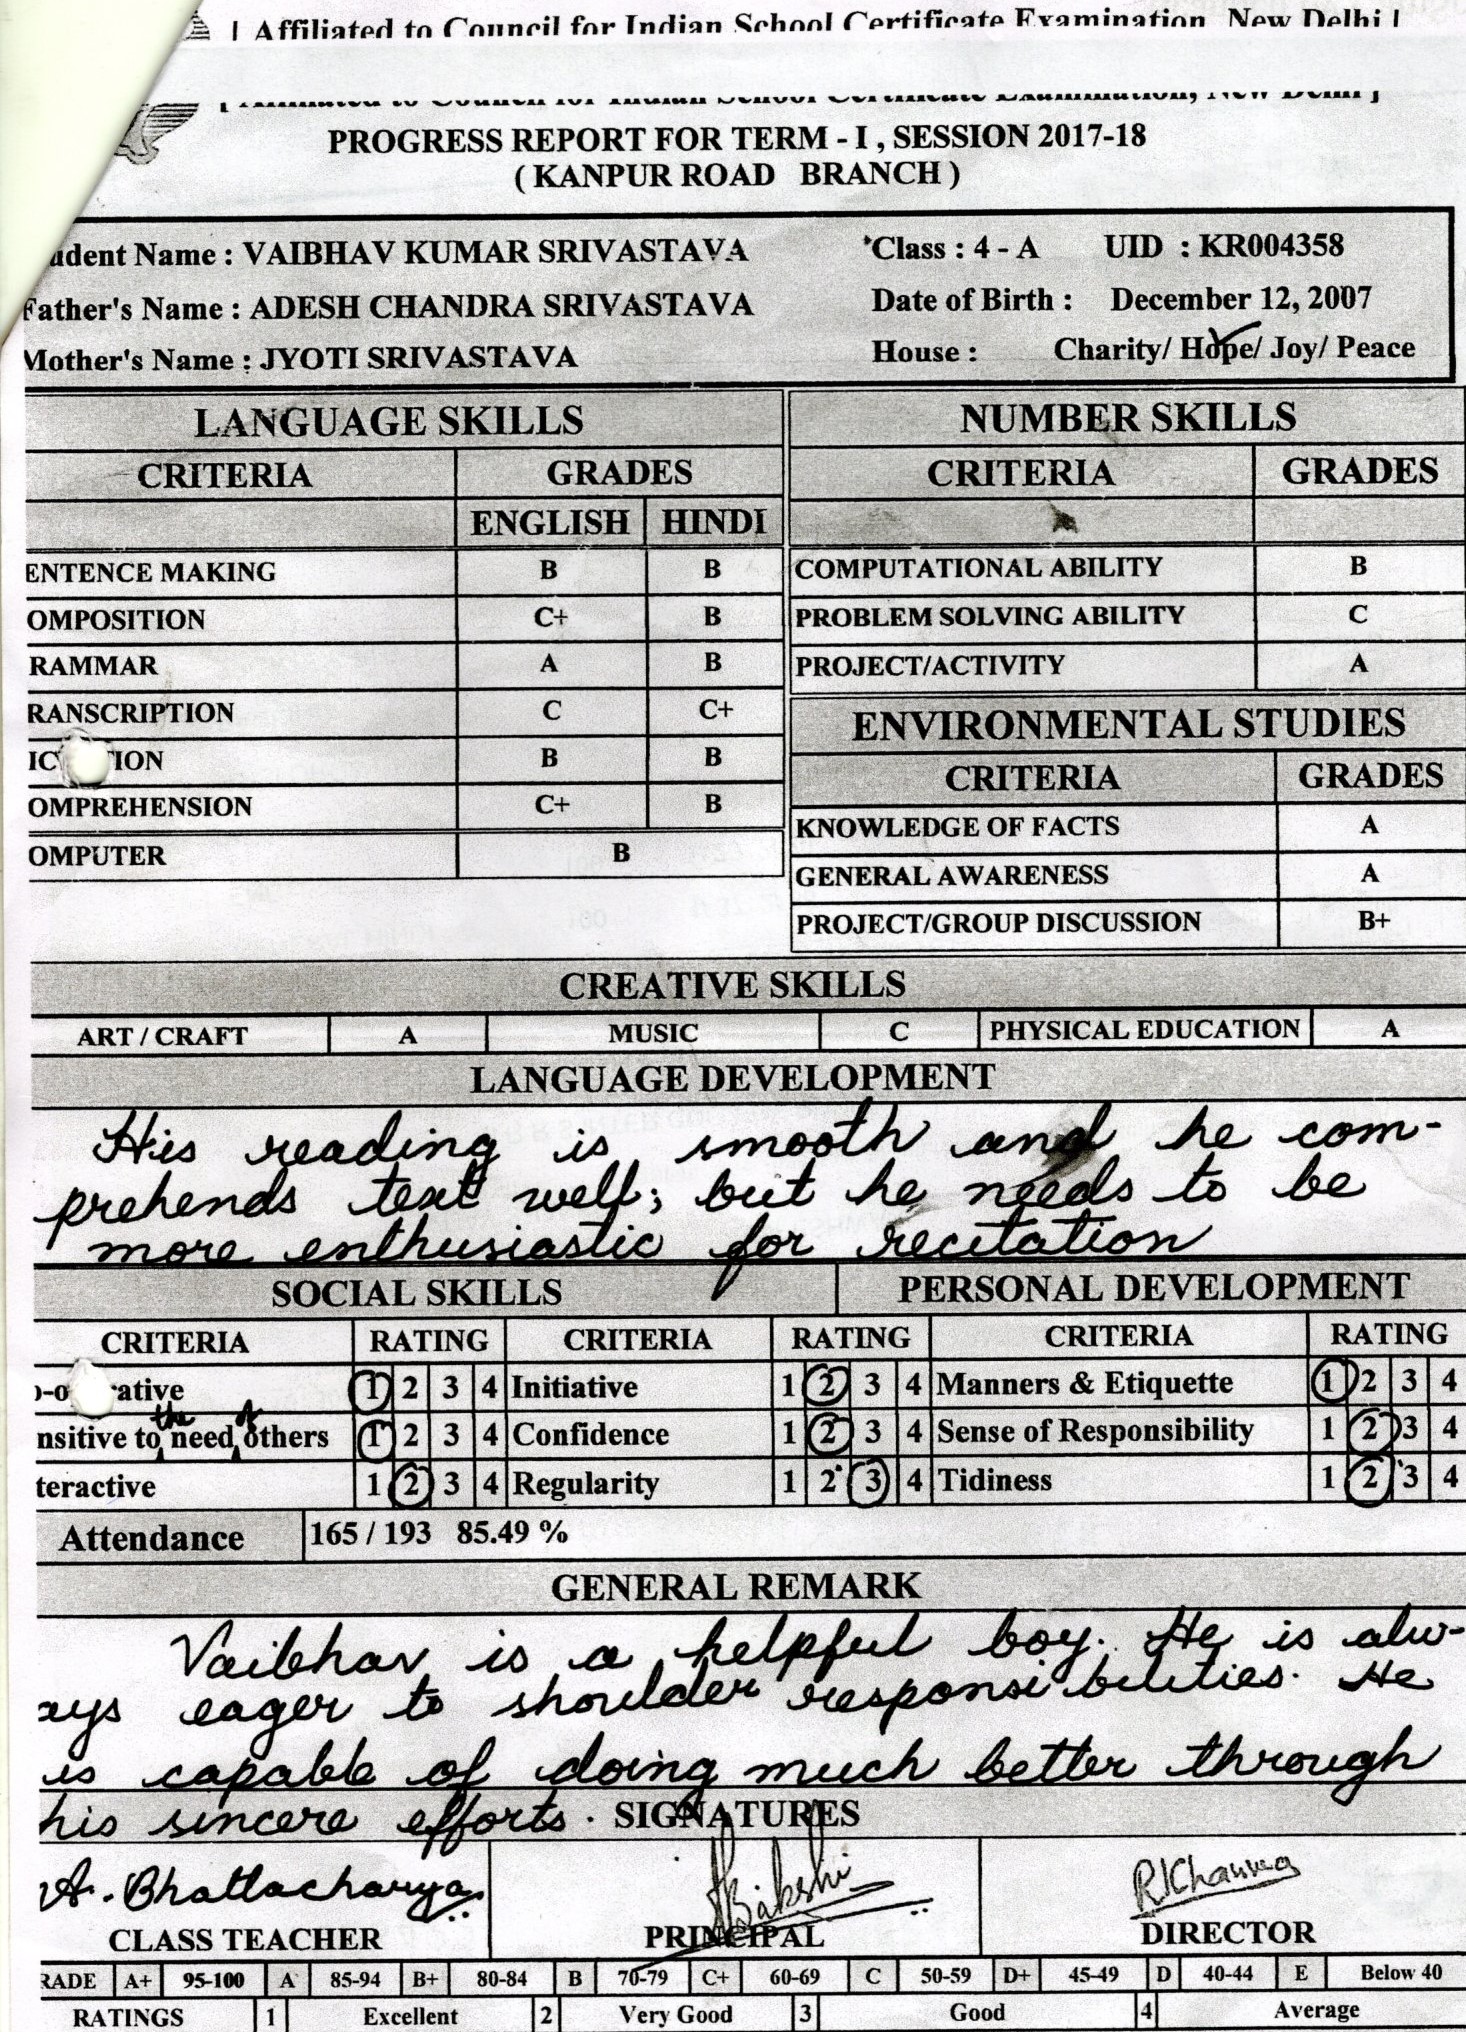 | Affiliated to Council for Indian School Certificate Examination, New Delhi |
[ Affiliated to Council for Indian School Certificate Examination, New Delhi ]
PROGRESS REPORT FOR TERM - I , SESSION 2017-18
( KANPUR ROAD BRANCH )
udent Name : VAIBHAV KUMAR SRIVASTAVA Class : 4 - A UID : KR004358
Father's Name : ADESH CHANDRA SRIVASTAVA Date of Birth : December 12, 2007
Mother's Name : JYOTI SRIVASTAVA House : Charity/ Hope/ Joy/ Peace
LANGUAGE SKILLS NUMBER SKILLS
CRITERIA GRADES CRITERIA GRADES
ENGLISH HINDI
ENTENCE MAKING B B COMPUTATIONAL ABILITY B
OMPOSITION C+ B PROBLEM SOLVING ABILITY C
RAMMAR A B PROJECT/ACTIVITY A
RANSCRIPTION C C+ ENVIRONMENTAL STUDIES
IC ION B B CRITERIA GRADES
OMPREHENSION C+ B KNOWLEDGE OF FACTS A
OMPUTER B GENERAL AWARENESS A
PROJECT/GROUP DISCUSSION B+
CREATIVE SKILLS
ART / CRAFT A MUSIC C PHYSICAL EDUCATION A
LANGUAGE DEVELOPMENT
His reading is smooth and he com-
prehends text well; but he needs to be
more enthusiastic for recitation
SOCIAL SKILLS PERSONAL DEVELOPMENT
CRITERIA RATING CRITERIA RATING CRITERIA RATING
o-o rative 1 2 3 4 Initiative 1 2 3 4 Manners & Etiquette 1 2 3 4
nsitive to the need of others 1 2 3 4 Confidence 1 2 3 4 Sense of Responsibility 1 2 3 4
teractive 1 2 3 4 Regularity 1 2 3 4 Tidiness 1 2 3 4
Attendance 165 / 193 85.49 %
GENERAL REMARK
Vaibhav is a helpful boy. He is alw-
ays eager to shoulder responsibilities. He
is capable of doing much better through
his sincere efforts. SIGNATURES
A. Bhattacharya Bakshi RKhanna
CLASS TEACHER PRINCIPAL DIRECTOR
RADE A+ 95-100 A 85-94 B+ 80-84 B 70-79 C+ 60-69 C 50-59 D+ 45-49 D 40-44 E Below 40
RATINGS 1 Excellent 2 Very Good 3 Good 4 Average